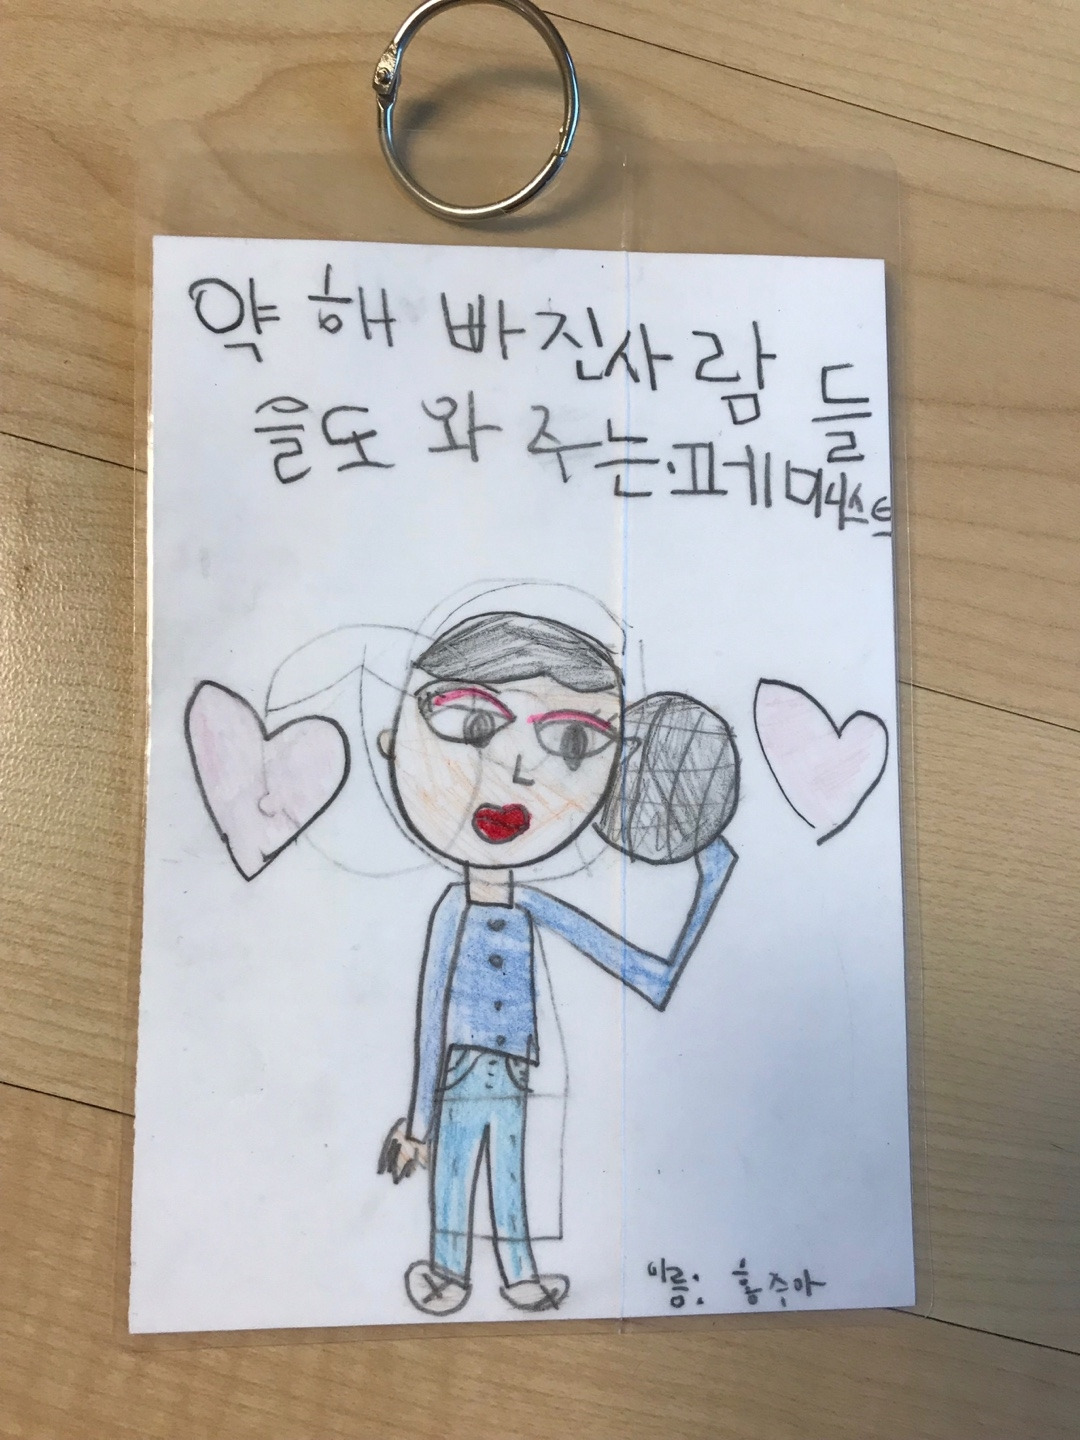 약해 빠진사람들
을도와주는.페미니스트
이름: 홍주아